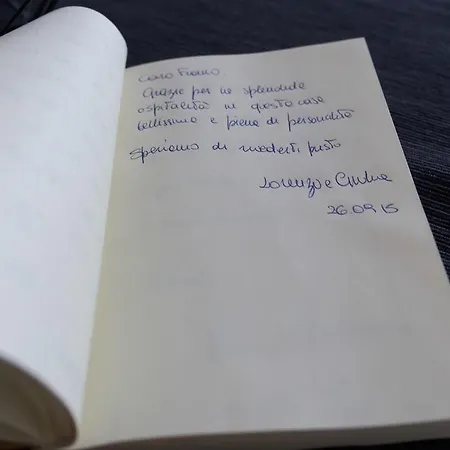 Caro Franco.
Grazie per la splendida
ospitalità in questa casa
bellissima e piena di personalità
Speriamo di rivederti presto
Lorenzo e Giulia
26.09.15